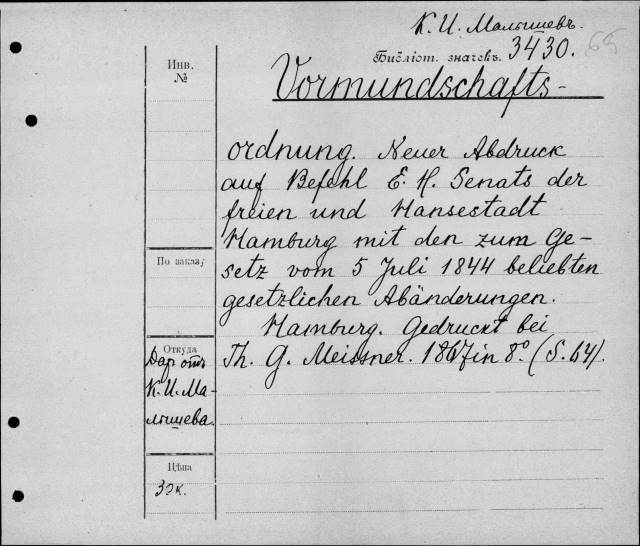 К. И. Малышевъ.
Библіот. значекъ. 3430.
65
Инв.
№
Vormundschafts-
ordnung. Neuer Abdruck
auf Befehl E. H. Senats der
freien und Hansestadt
Hamburg mit den zum Ge-
setz vom 5 Juli 1844 beliebten
gesetzlichen Abänderungen.
Hamburg. Gedruckt bei
Th. G. Meissner. 1867 in 8º. (S. 64).
По заказу
Откуда
Даръ отъ
К. И. Ма-
лышева.
Цѣна
30к.